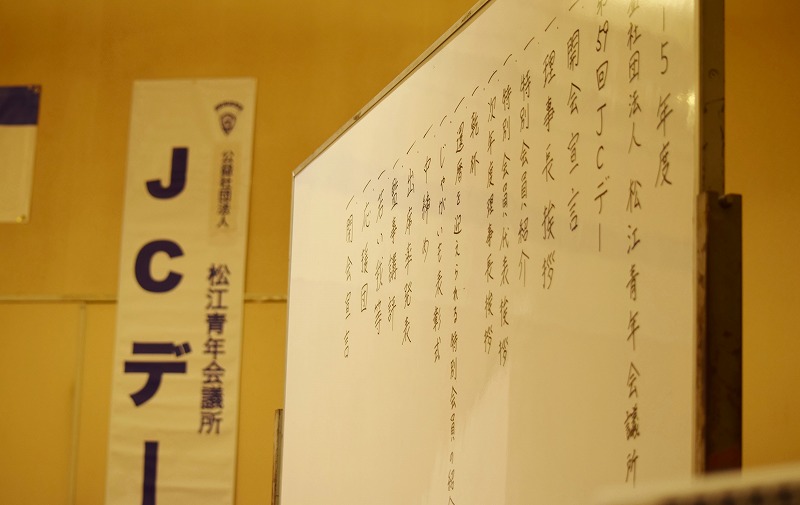 公益社団法人
松江青年会議所
JCデー
15年度
益社団法人 松江青年会議所
第59回JCデー
一 開会宣言
一 理事長挨拶
一 特別会員紹介
一 特別会員代表挨拶
一 次年度理事長挨拶
一 乾杯
一 還暦を迎えられる特別会員の紹介
一 じゃがいも表彰式
一 中締め
一 出席率発表
一 監事講評
一 若い我等
一 応援団
一 閉会宣言